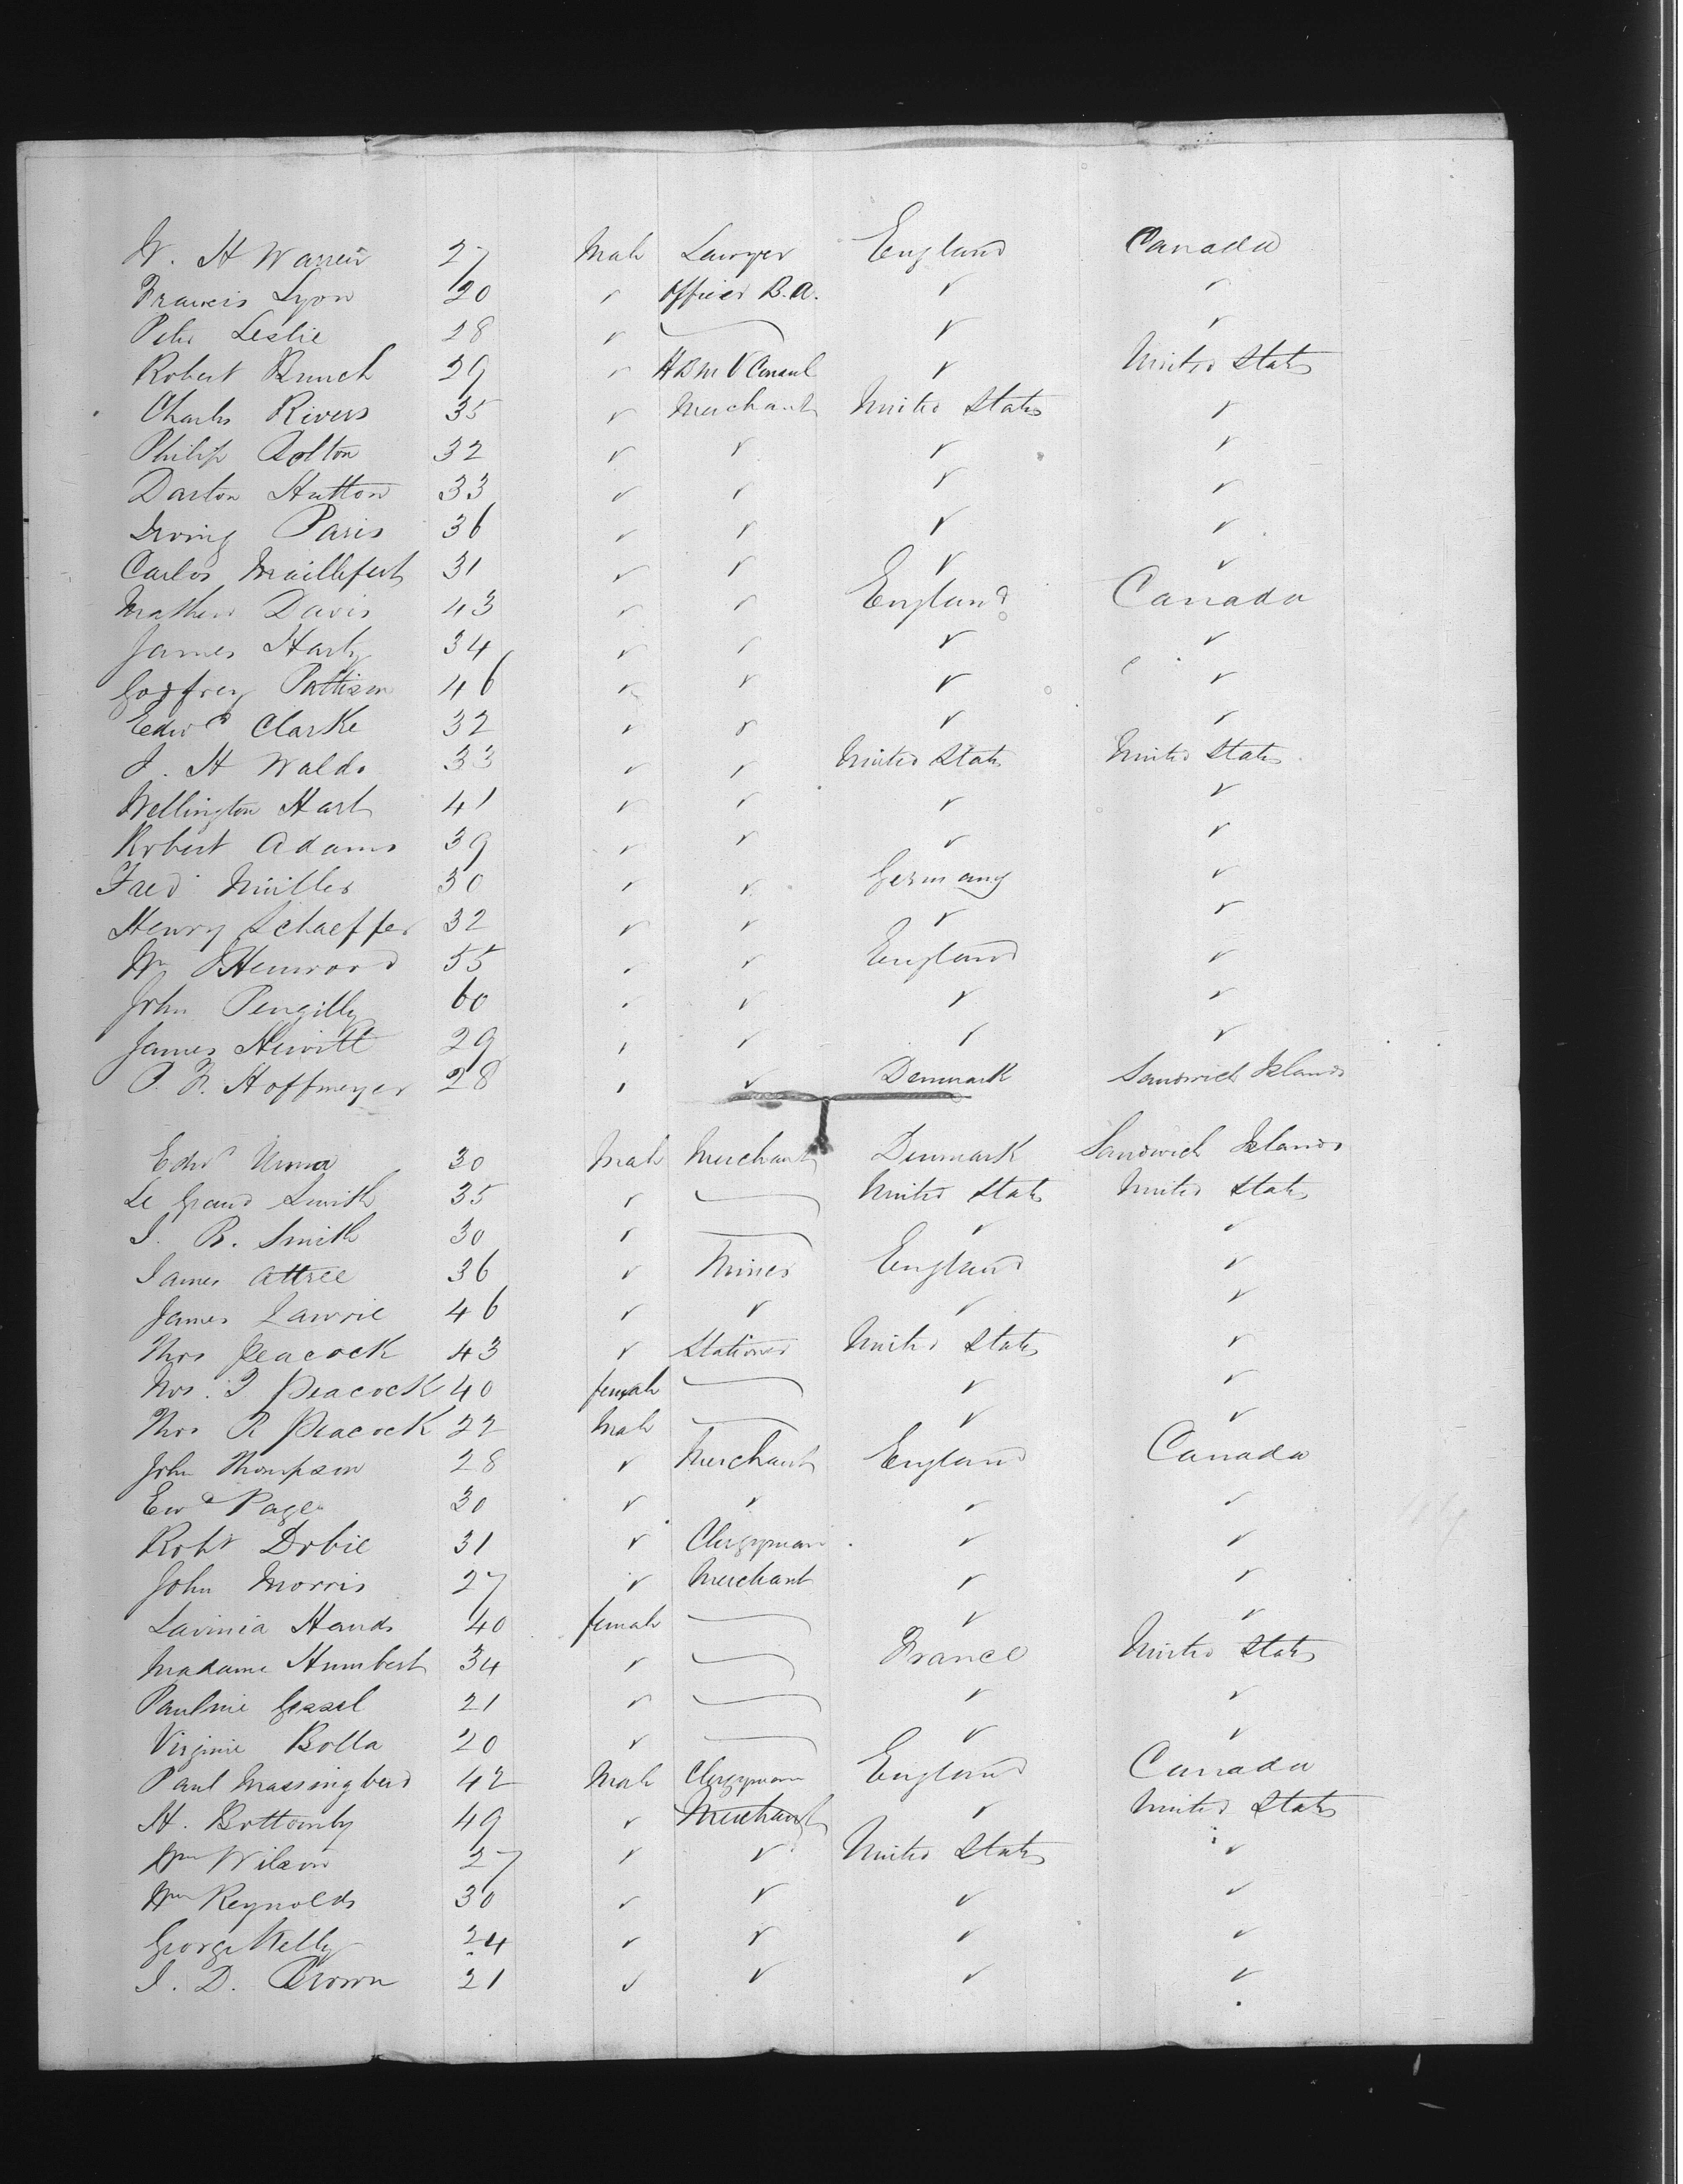 W. H Warren 27 Male Lawyer England Canada
Francis Lyon 20 ✓ Officer B.A. ✓ ✓
Peter Leslie 28 ✓ — ✓ ✓
Robert Bunch 29 ✓ HBM V Consul ✓ United States
Charles Rivers 35 ✓ Merchant United States ✓
Philip Dolton 32 ✓ ✓ ✓ ✓
Darton Hutton 33 ✓ ✓ ✓ ✓
Irving Paris 36 ✓ ✓ ✓ ✓
Carlos Maillefert 31 ✓ ✓ ✓ ✓
Mathew Davis 43 ✓ ✓ England Canada
James Harty 34 ✓ ✓ ✓ ✓
Godfrey Pattison 46 ✓ ✓ ✓ ✓
Edwd Clarke 32 ✓ ✓ ✓ ✓
J. H Waldo 33 ✓ ✓ United States United States
Wellington Hart 41 ✓ ✓ ✓ ✓
Robert Adams 39 ✓ ✓ ✓ ✓
Fred Müller 30 ✓ ✓ Germany ✓
Henry Schaeffer 32 ✓ ✓ ✓ ✓
Wm Henwood 55 ✓ ✓ England ✓
John Pengilly 60 ✓ ✓ ✓ ✓
James Hewitt 29 ✓ ✓ ✓ ✓
P. F. Hoffmeyer 28 ✓ ✓ Denmark Sandwich Islands
Edwd 30 Male Merchant Denmark Sandwich Islands
Le Grand Smith 35 ✓ — United States United States
J. B. Smith 30 ✓ — ✓ ✓
James Attree 36 ✓ Miner England ✓
James Lawrie 46 ✓ ✓ ✓ ✓
Thos Peacock 43 ✓ Stationer United States ✓
Mrs. T Peacock 40 female — ✓ ✓
Thos R Peacock 22 Male — ✓ ✓
John Thompson 28 ✓ Merchant England Canada
Ewd Page 30 ✓ ✓ ✓ ✓
Robt Dobie 31 ✓ Clergyman ✓ ✓
John Morris 27 ✓ Merchant ✓ ✓
Lavinia Hands 40 female — ✓ ✓
Madame Humbert 34 ✓ — France United States
Pauline Gessel 21 ✓ — ✓ ✓
Virginie Bolla 20 ✓ — ✓ ✓
Paul Massingberd 42 Male Clergyman England Canada
H. Bottomly 49 ✓ Merchant ✓ United States
Wm Wilson 27 ✓ ✓ United States ✓
Wm Reynolds 30 ✓ ✓ ✓ ✓
George Kelly 24 ✓ ✓ ✓ ✓
J. D. Brown 21 ✓ ✓ ✓ ✓